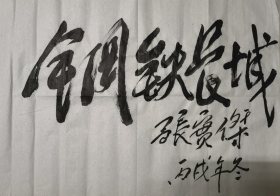 鋼鉄長城
張傑
丙戌年冬